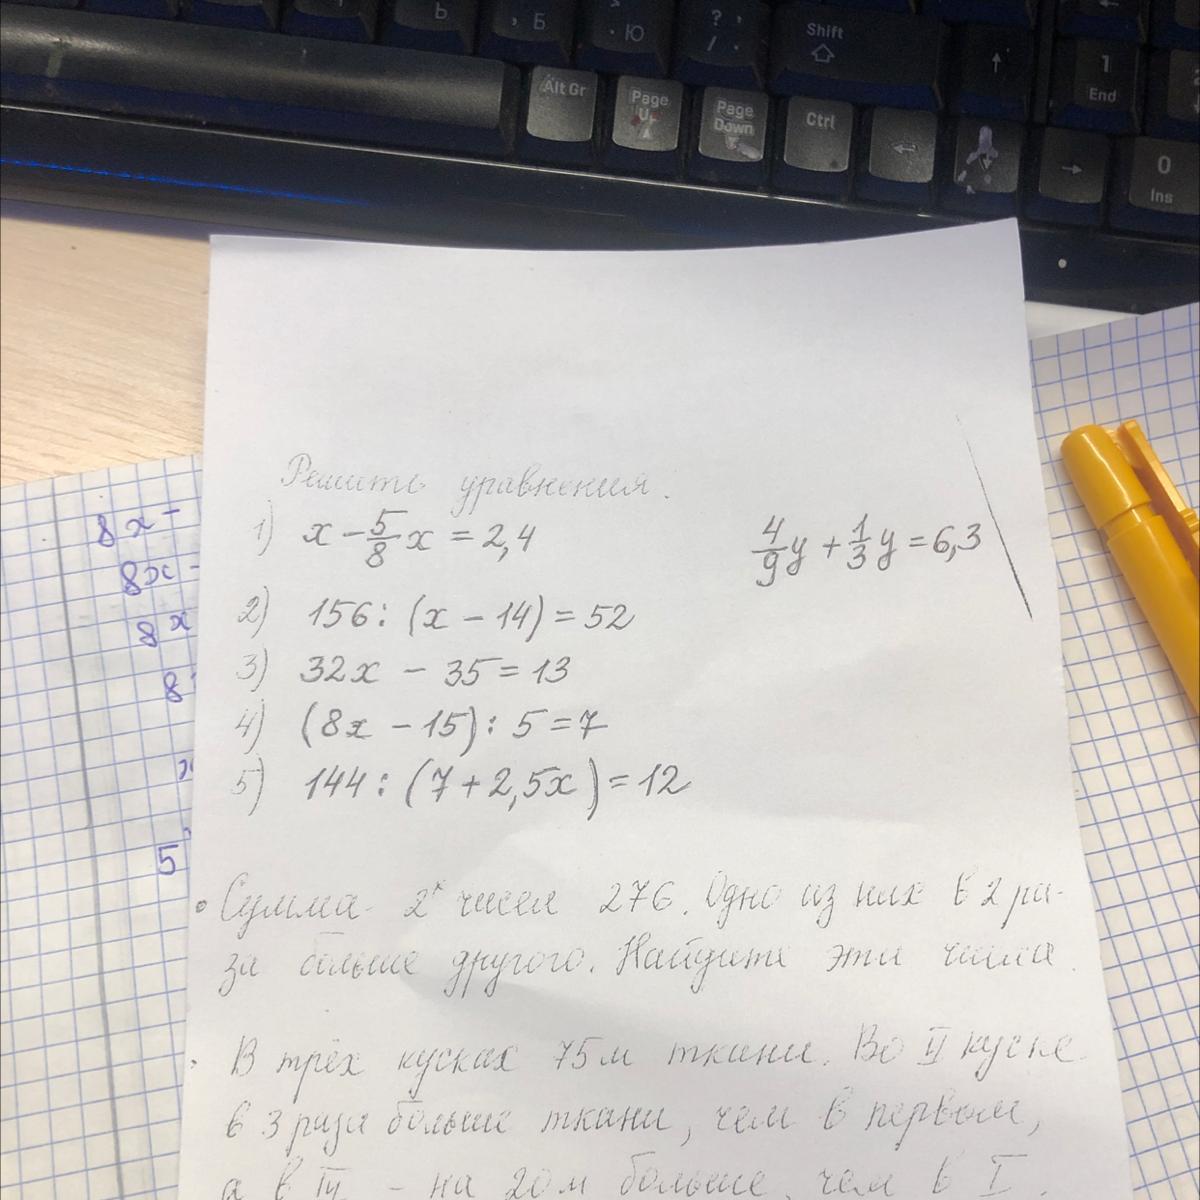 Ь
, Б
. Ю
? ,
/ .
Shift
1
End
Alt Gr
Page
Up
Page
Down
Ctrl
0
Ins
Решить уравнения.
1) x - 5/8 x = 2,4
4/9 y + 1/3 y = 6,3
2) 156 : (x - 14) = 52
3) 32x - 35 = 13
4) (8x - 15) : 5 = 7
5) 144 : (7 + 2,5x) = 12
• Сумма 2ˣ чисел 276. Одно из них в 2 ра-
за больше другого. Найдите эти числа.
• В трёх кусках 75м ткани. Во II куске
в 3 раза больше ткани, чем в первом,
а в III - на 20м больше, чем в I.
8x -
8x -
8x
8
x
5